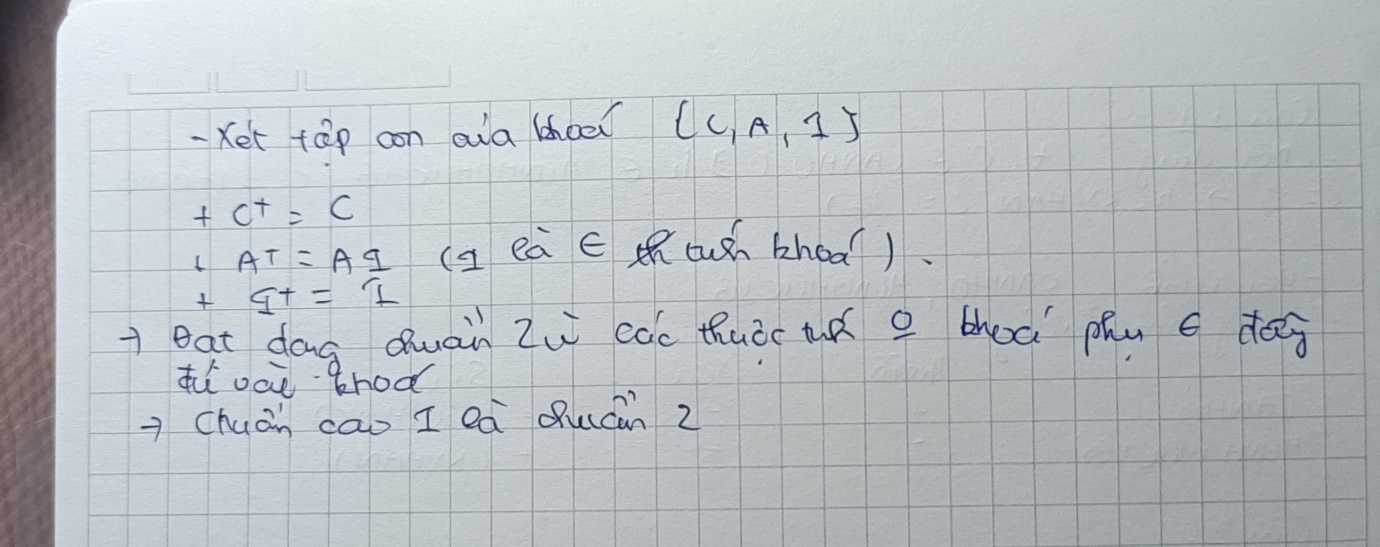 - Xét tập con của khoá {C, A, I}
+ C+ = C
+ A+ = A I (I là ∈ tính khoá).
+ I+ = I
→ Đạt dạng chuẩn 2 vì các thuộc tính 0 khoá phụ ∈ đầy
đủ vào khoá
→ Chuẩn cao I là chuẩn 2